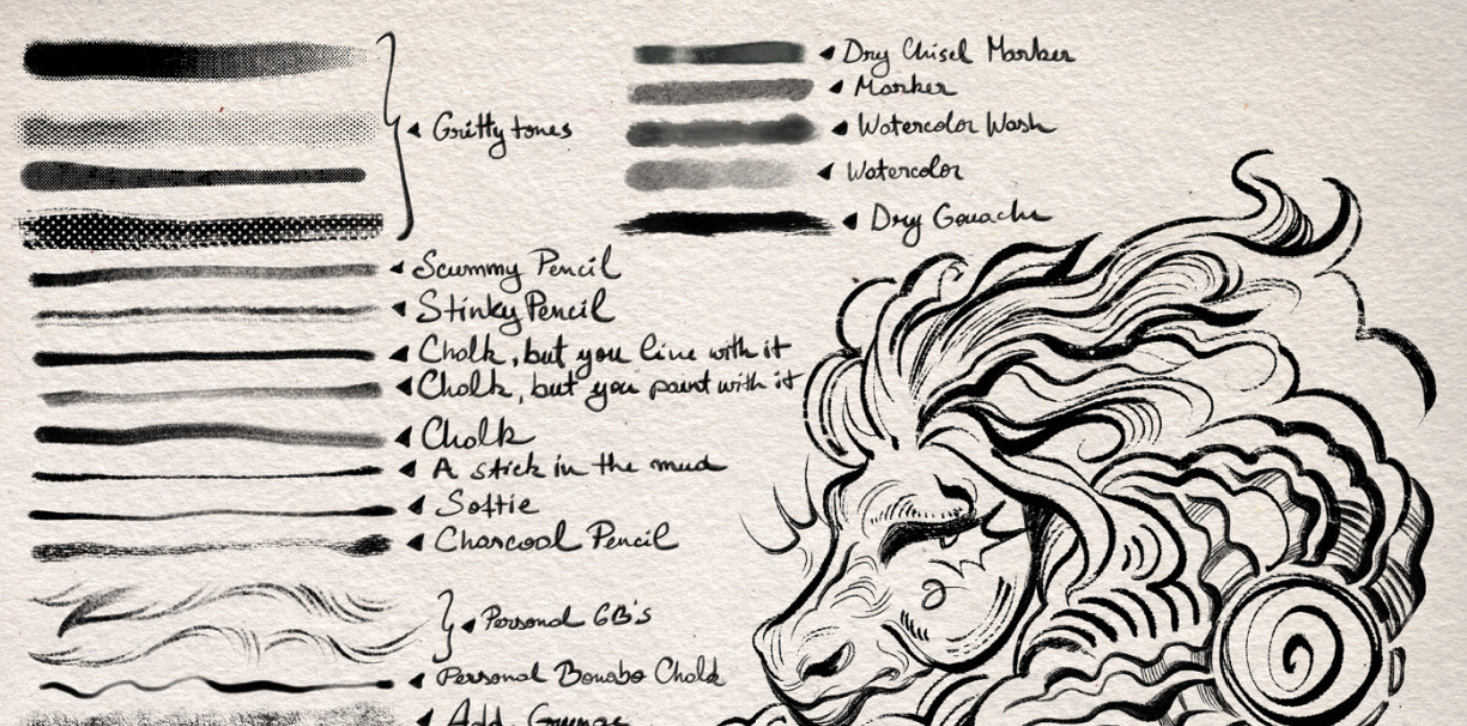 Gritty tones
Scummy Pencil
Stinky Pencil
Chalk, but you line with it
Chalk, but you paint with it
Chalk
A stick in the mud
Softie
Charcoal Pencil
Personal 6B's
Personal Bonobo Chalk
Add. Grunge
Dry Chisel Marker
Marker
Watercolor Wash
Watercolor
Dry Gouache